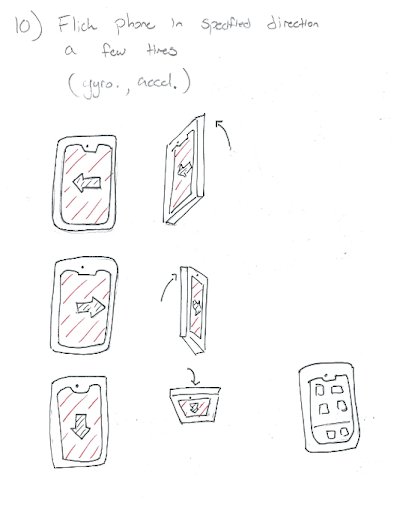 10) Flick phone in specified direction
a few times
(gyro., accel.)